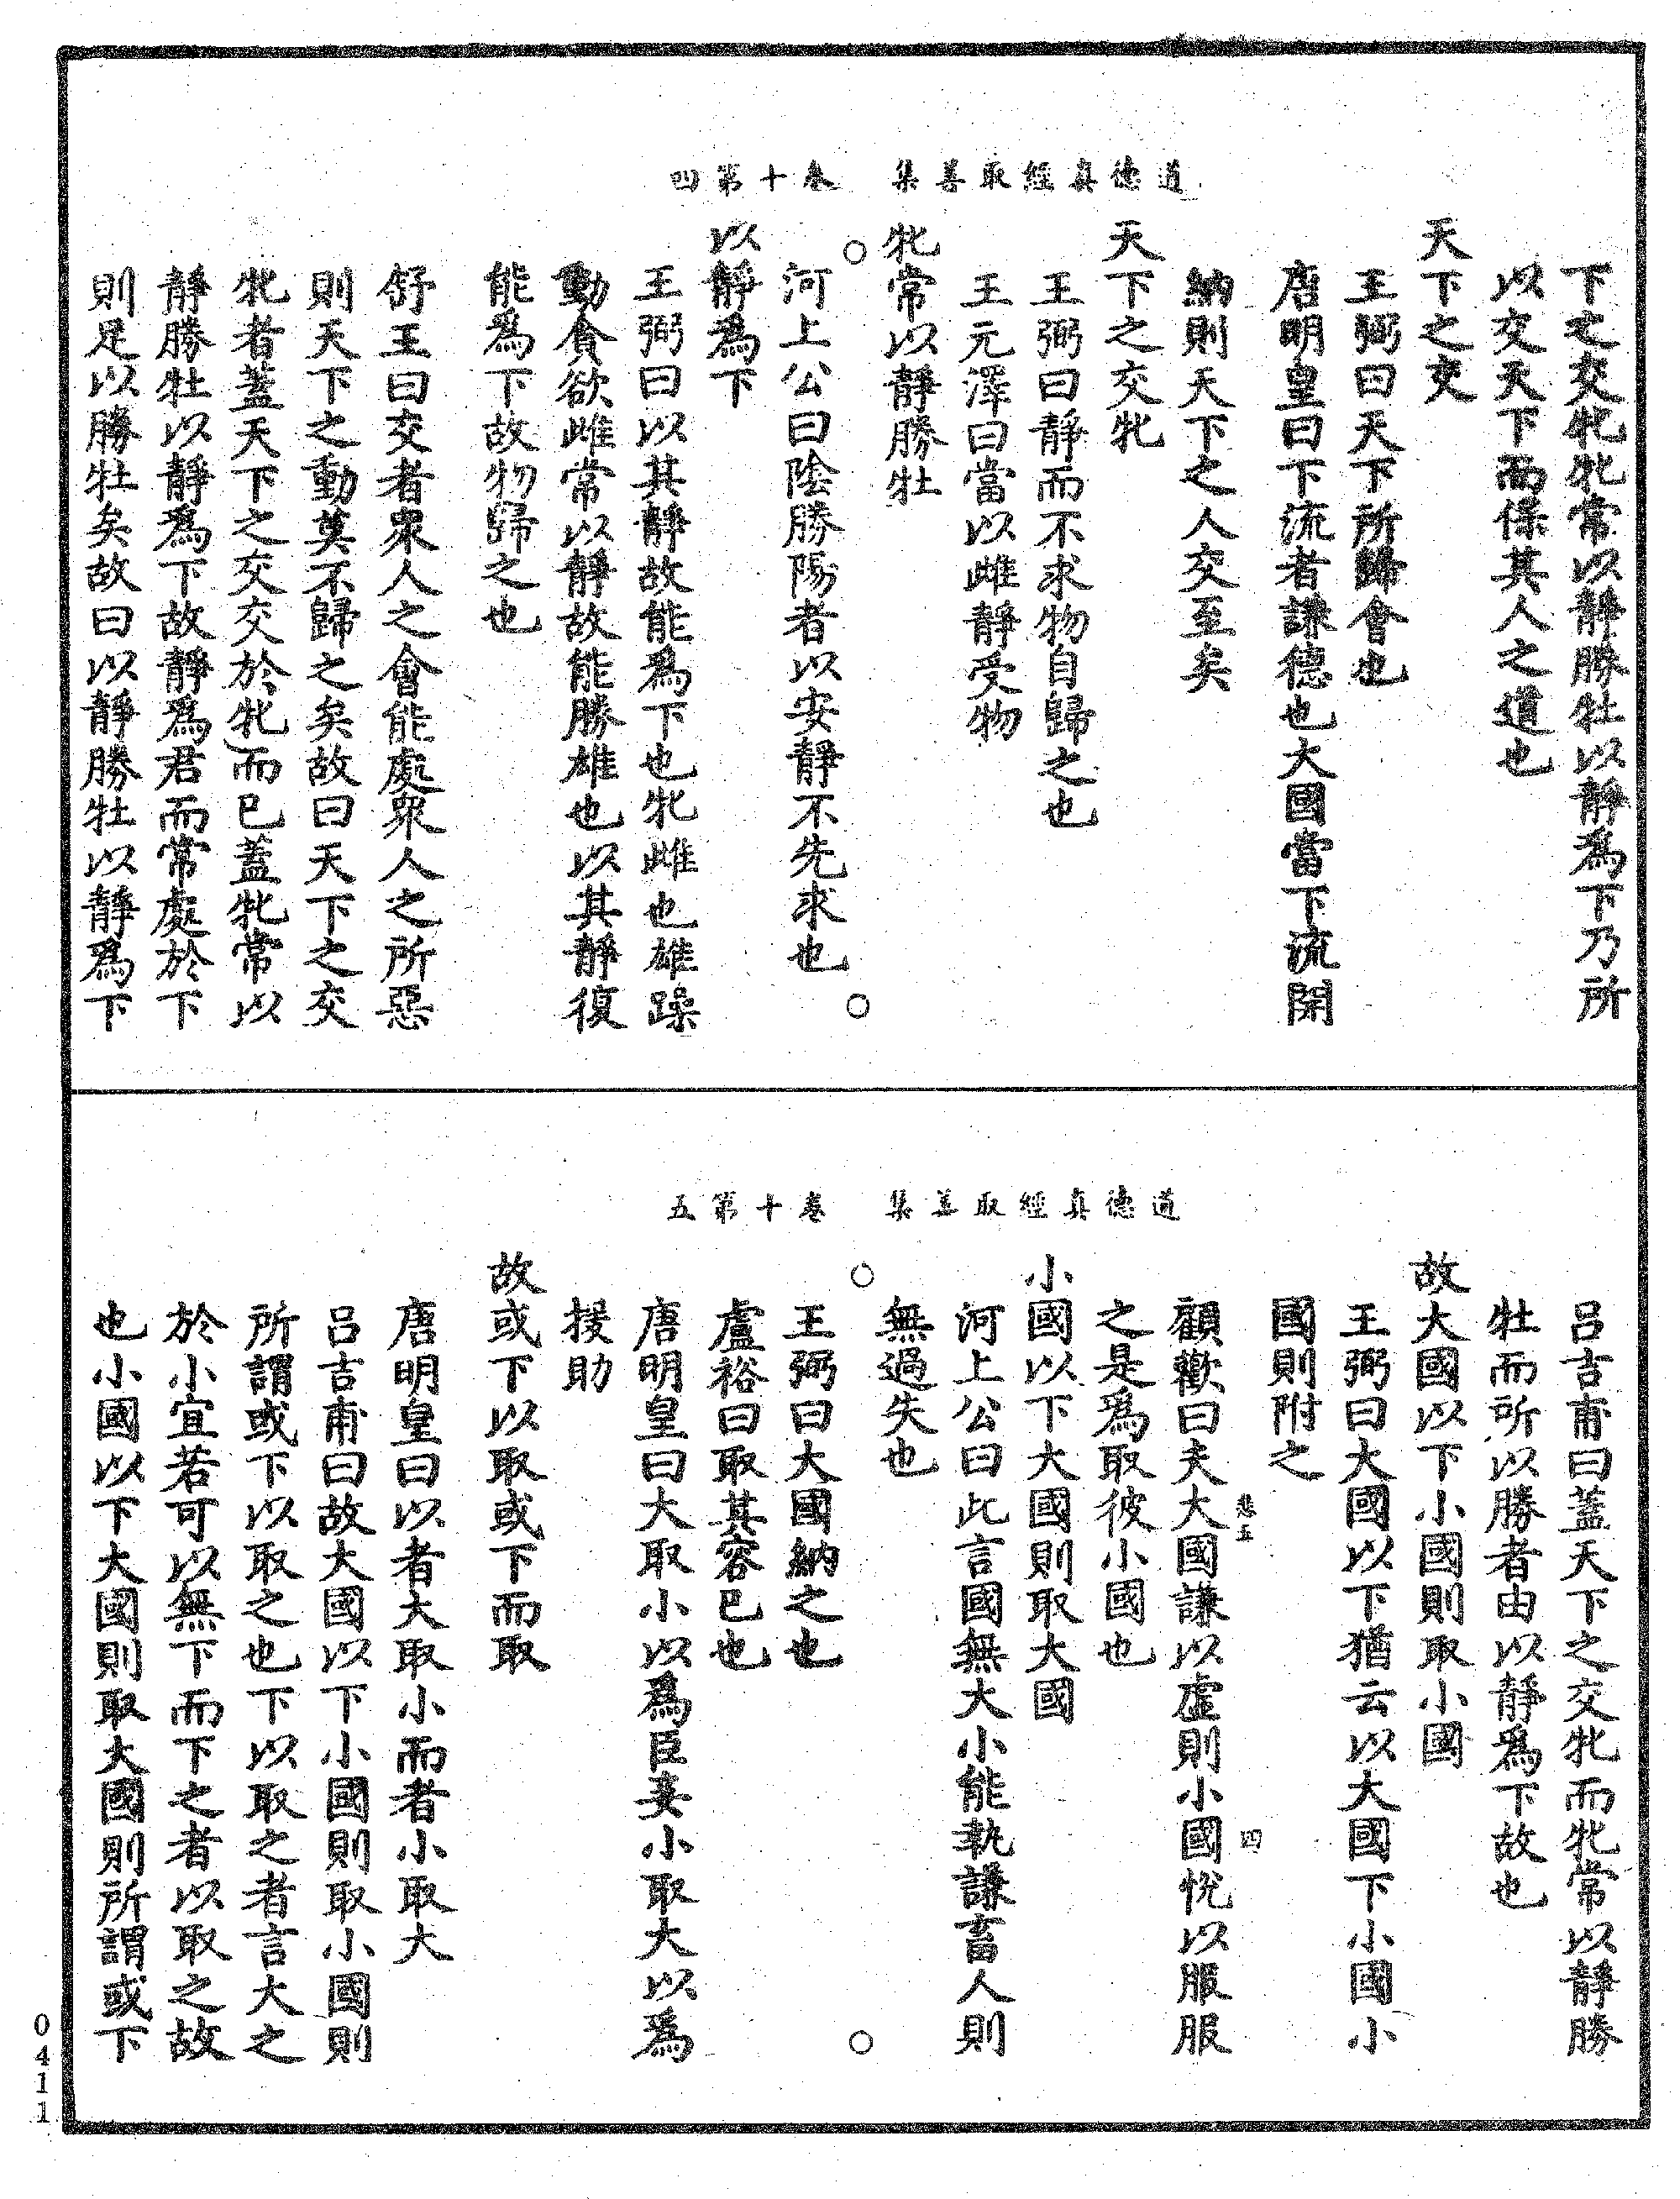 道德真經取善集　卷十第四
下之交牝牝常以靜勝牡以靜爲下乃所
以交天下而保其人之道也
天下之交
王弼曰天下所歸會也
唐明皇曰下流者謙德也大國當下流開
納則天下之人交至矣
天下之交牝
王弼曰靜而不求物自歸之也
王元澤曰當以雌靜受物
牝常以靜勝牡
○　○
河上公曰陰勝陽者以安靜不先求也
以靜爲下
王弼曰以其靜故能爲下也牝雌也雄躁
動貪欲雌常以靜故能勝雄也以其靜復
能爲下故物歸之也
舒王曰交者衆人之會能處衆人之所惡
則天下之動莫不歸之矣故曰天下之交
牝者蓋天下之交交於牝而已蓋牝常以
靜勝牡以靜爲下故靜爲君而常處於下
則足以勝牡矣故曰以靜勝牡以靜爲下
道德真經取善集　卷十第五
呂吉甫曰蓋天下之交牝而牝常以靜勝
牡而所以勝者由以靜爲下故也
故大國以下小國則取小國
王弼曰大國以下猶云以大國下小國小
國則附之
悲五　四
顧歡曰夫大國謙以虛則小國悅以服服
之是爲取彼小國也
小國以下大國則取大國
河上公曰此言國無大小能執謙畜人則
無過失也
○　○
王弼曰大國納之也
盧裕曰取其容已也
唐明皇曰大取小以爲臣妾小取大以爲
援助
故或下以取或下而取
唐明皇曰以者大取小而者小取大
呂吉甫曰故大國以下小國則取小國則
所謂或下以取之也下以取之者言大之
於小宜若可以無下而下之者以取之故
也小國以下大國則取大國則所謂或下
0411